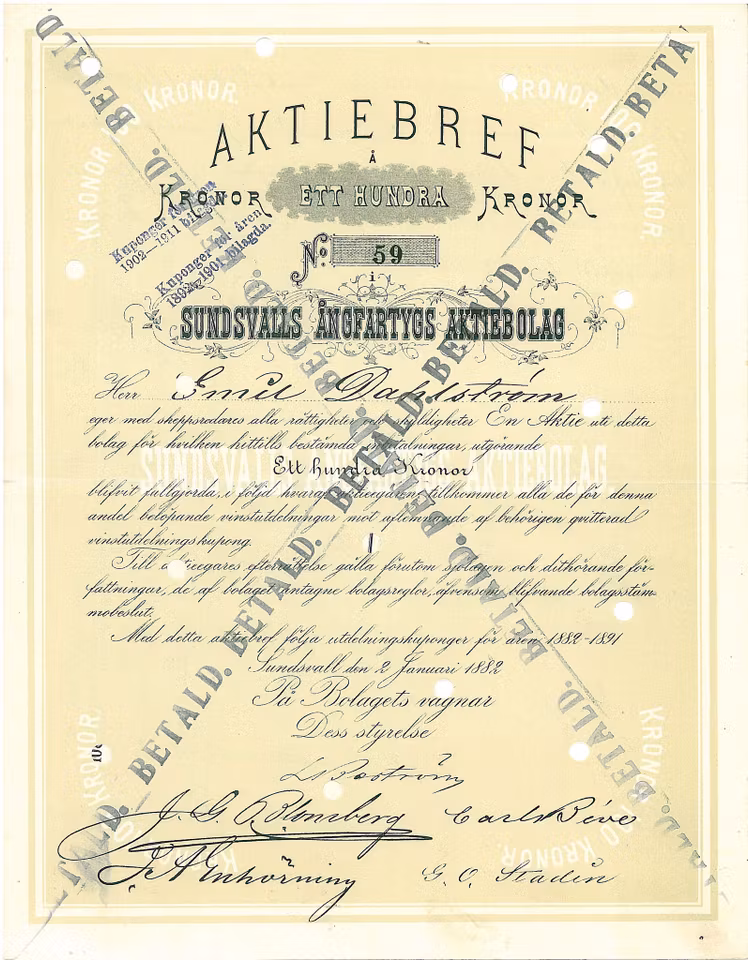 AKTIEBREF
Å
KRONOR ETT HUNDRA KRONOR
No. 59
i
SUNDSVALLS ÅNGFARTYGS AKTIEBOLAG
Kuponger för åren
1902–1911 bilagda.
Kuponger för åren
1892–1901 bilagda.
Herr Emil Dahlström
eger med skeppsredares alla rättigheter och skyldigheter En Aktie uti detta
bolag för hvilken hittills bestämda inbetalningar, utgörande
Ett hundra Kronor
blifvit fullgjorda, i följd hvaraf aktieegaren tillkommer alla de för denna
andel belöpande vinstutdelningar mot aflemnande af behörigen qvitterad
vinstutdelningskupong.
Till aktieegares efterrättelse gälla förutom sjölagen och dithörande för-
fattningar, de af bolaget antagne bolagsreglor, äfvensom blifvande bolagsstäm-
mobeslut.
Med detta aktiebref följa utdelningskuponger för åren 1882-1891
Sundsvall den 2 Januari 1882
På Bolagets vägnar
Dess styrelse
J. G. Blomberg
G. O. Stadin
BETALD. BETALD. BETALD. BETALD. BETALD. BETALD.
BETALD. BETALD. BETALD. BETALD. BETALD. BETALD.
100 KRONOR
100 KRONOR
100 KRONOR
100 KRONOR
SUNDSVALLS ÅNGFARTYGS AKTIEBOLAG.